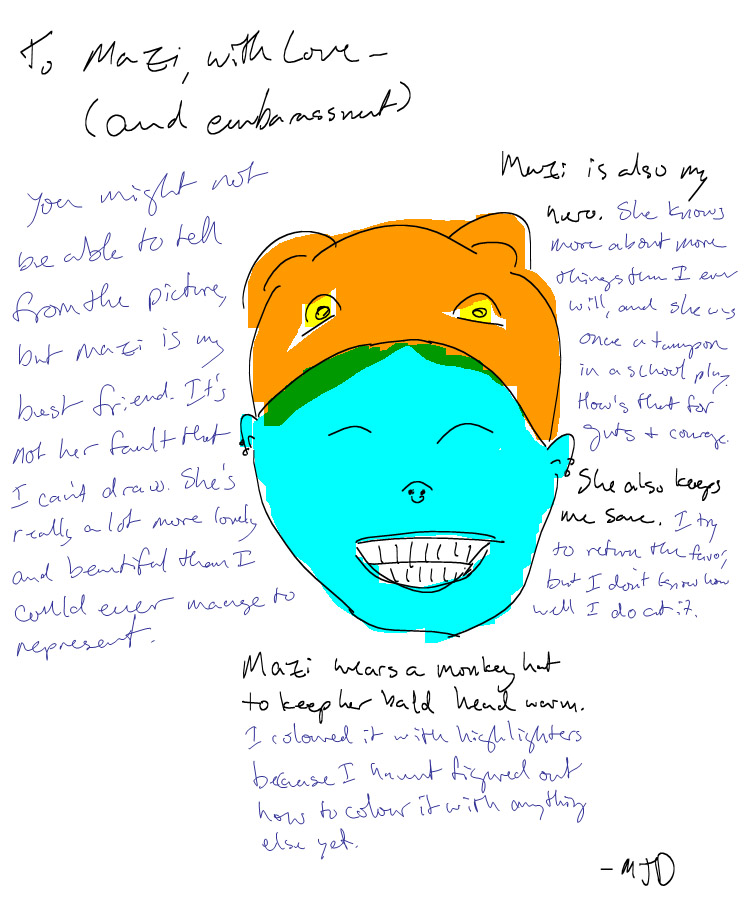 To Mazi, with Love -
(and embarassment)
You might not
be able to tell
from the picture,
but Mazi is my
best friend. It's
not her fault that
I can't draw. She's
really a lot more lovely
and beautiful than I
could ever manage to
represent.
Mazi is also my
hero. She knows
more about more
things than I ever
will, and she was
once a tampon
in a school play.
How's that for
guts + courage.
She also keeps
me sane. I try
to return the favor,
but I don't know how
well I do at it.
Mazi wears a monkey hat
to keep her bald head warm.
I coloured it with highlighters
because I haven't figured out
how to colour it with anything
else yet.
- MJD